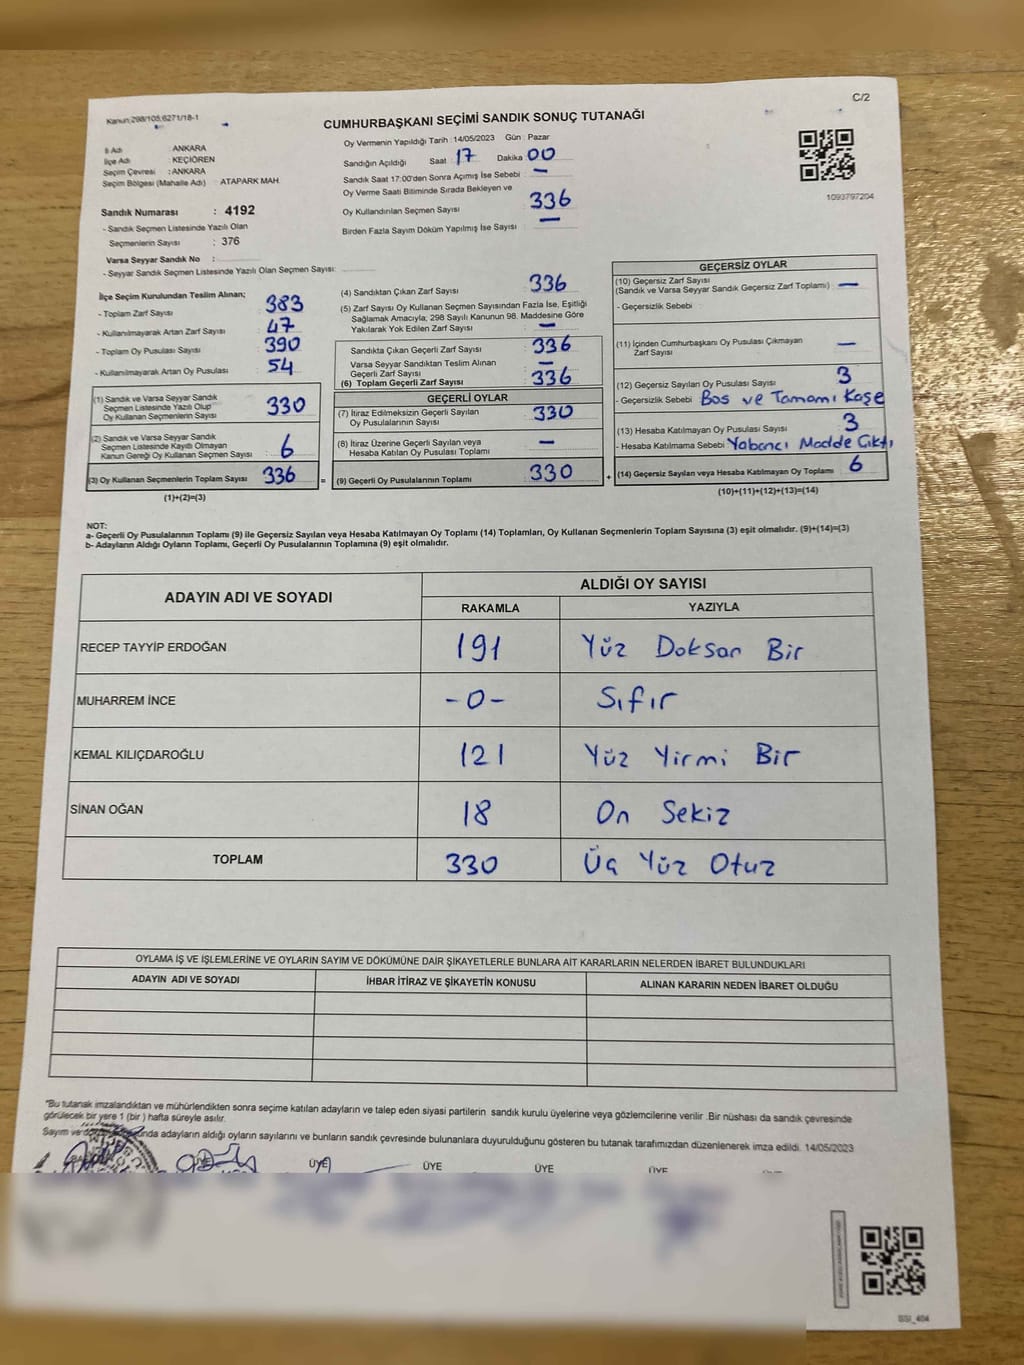 C/2
Kanun:298/105;6271/18-1
CUMHURBAŞKANI SEÇİMİ SANDIK SONUÇ TUTANAĞI
İl Adı : ANKARA
İlçe Adı : KEÇİÖREN
Seçim Çevresi : ANKARA
Seçim Bölgesi (Mahalle Adı) : ATAPARK MAH.
Oy Vermenin Yapıldığı Tarih : 14/05/2023 Gün : Pazar
Sandığın Açıldığı Saat 17 Dakika 00
Sandık Saat 17:00'den Sonra Açımış İse Sebebi —
Oy Verme Saati Bitiminde Sırada Bekleyen ve
Oy Kullandırılan Seçmen Sayısı 336
Birden Fazla Sayım Döküm Yapılmış İse Sayısı —
1093797204
Sandık Numarası : 4192
- Sandık Seçmen Listesinde Yazılı Olan
Seçmenlerin Sayısı : 376
Varsa Seyyar Sandık No :
- Seyyar Sandık Seçmen Listesinde Yazılı Olan Seçmen Sayısı:
İlçe Seçim Kurulundan Teslim Alınan;
- Toplam Zarf Sayısı 383
- Kullanılmayarak Artan Zarf Sayısı 47
- Toplam Oy Pusulası Sayısı 390
- Kullanılmayarak Artan Oy Pusulası 54
(1) Sandık ve Varsa Seyyar Sandık
Seçmen Listesinde Yazılı Olup
Oy Kullanan Seçmenlerin Sayısı 330
(2) Sandık ve Varsa Seyyar Sandık
Seçmen Listesinde Kayıtlı Olmayan
Kanun Gereği Oy Kullanan Seçmen Sayısı 6
(3) Oy Kullanan Seçmenlerin Toplam Sayısı 336 =
(1)+(2)=(3)
(4) Sandıktan Çıkan Zarf Sayısı 336
(5) Zarf Sayısı Oy Kullanan Seçmen Sayısından Fazla İse, Eşitliği
Sağlamak Amacıyla; 298 Sayılı Kanunun 98. Maddesine Göre
Yakılarak Yok Edilen Zarf Sayısı —
Sandıkta Çıkan Geçerli Zarf Sayısı 336
Varsa Seyyar Sandıktan Teslim Alınan
Geçerli Zarf Sayısı —
(6) Toplam Geçerli Zarf Sayısı 336
GEÇERLİ OYLAR
(7) İtiraz Edilmeksizin Geçerli Sayılan
Oy Pusulalarının Sayısı 330
(8) İtiraz Üzerine Geçerli Sayılan veya
Hesaba Katılan Oy Pusulası Toplamı —
(9) Geçerli Oy Pusulalarının Toplamı 330 +
GEÇERSİZ OYLAR
(10) Geçersiz Zarf Sayısı
(Sandık ve Varsa Seyyar Sandık Geçersiz Zarf Toplamı) —
- Geçersizlik Sebebi :
(11) İçinden Cumhurbaşkanı Oy Pusulası Çıkmayan
Zarf Sayısı —
(12) Geçersiz Sayılan Oy Pusulası Sayısı 3
- Geçersizlik Sebebi Bos ve Tamamı Kaşe
(13) Hesaba Katılmayan Oy Pusulası Sayısı 3
- Hesaba Katılmama Sebebi Yabancı Madde Çıktı
(14) Geçersiz Sayılan veya Hesaba Katılmayan Oy Toplamı 6
(10)+(11)+(12)+(13)=(14)
NOT:
a- Geçerli Oy Pusulalarının Toplamı (9) ile Geçersiz Sayılan veya Hesaba Katılmayan Oy Toplamı (14) Toplamları, Oy Kullanan Seçmenlerin Toplam Sayısına (3) eşit olmalıdır. (9)+(14)=(3)
b- Adayların Aldığı Oyların Toplamı, Geçerli Oy Pusulalarının Toplamına (9) eşit olmalıdır.
ADAYIN ADI VE SOYADI ALDIĞI OY SAYISI
RAKAMLA YAZIYLA
RECEP TAYYİP ERDOĞAN 191 Yüz Doksan Bir
MUHARREM İNCE -0- Sıfır
KEMAL KILIÇDAROĞLU 121 Yüz Yirmi Bir
SİNAN OĞAN 18 On Sekiz
TOPLAM 330 Üç Yüz Otuz
OYLAMA İŞ VE İŞLEMLERİNE VE OYLARIN SAYIM VE DÖKÜMÜNE DAİR ŞİKAYETLERLE BUNLARA AİT KARARLARIN NELERDEN İBARET BULUNDUKLARI
ADAYIN ADI VE SOYADI İHBAR İTİRAZ VE ŞİKAYETİN KONUSU ALINAN KARARIN NEDEN İBARET OLDUĞU
"Bu tutanak imzalandıktan ve mühürlendikten sonra seçime katılan adayların ve talep eden siyasi partilerin sandık kurulu üyelerine veya gözlemcilerine verilir .Bir nüshası da sandık çevresinde
görülecek bir yere 1 (bir ) hafta süreyle asılır.
Sayım ve adayların aldığı oyların sayılarını ve bunların sandık çevresinde bulunanlara duyurulduğunu gösteren bu tutanak tarafımızdan düzenlenerek imza edildi. 14/05/2023
ÜYE ÜYE ÜYE ÜYE ÜYE
SSI_404